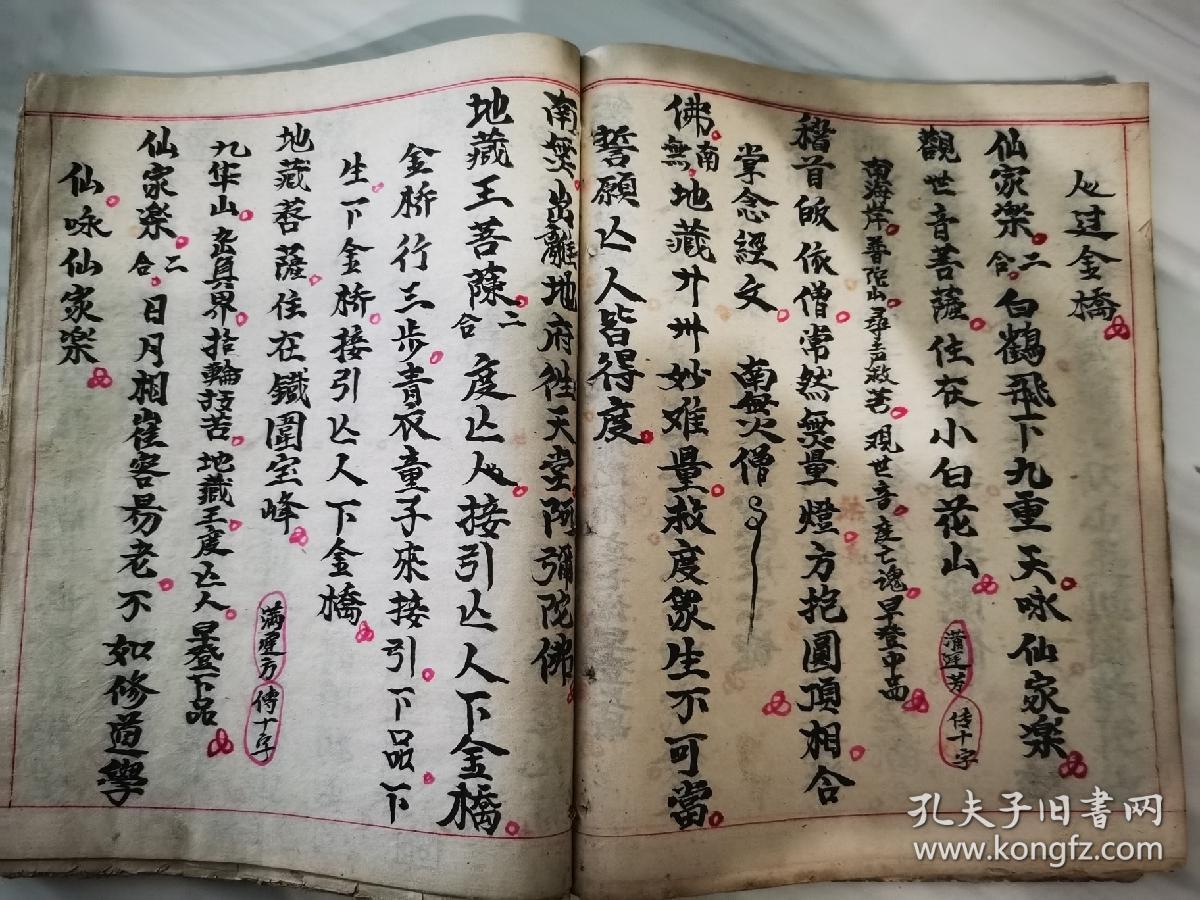 人过金橋
仙家楽二合白鶴飛下九重天咏仙家楽
觀世音菩薩住在小白花山
满庭芳 传十字
南海岸普陀山尋声救苦观世音度亡魂早登中品
稽首皈依僧常然無量燈方抱圓頂相合
掌念經文 南無火僧
佛南無地藏廾卅妙难量救度眾生不可當
誓願亾人皆得度
南無出離地府徃天堂阿彌陀佛
地藏王菩薩二合度亾人接引亾人下金橋
金桥行三步青衣童子來接引下品下
生下金桥接引亾人下金橋
地藏菩薩住在鐵圍室峰
满庭方 傳十字
九华山 界 輪 苦地藏王度亾人早登下品
仙家楽二合日月相崔容易老不如修道學
仙咏仙家楽
孔夫子旧书网
www.kongfz.com